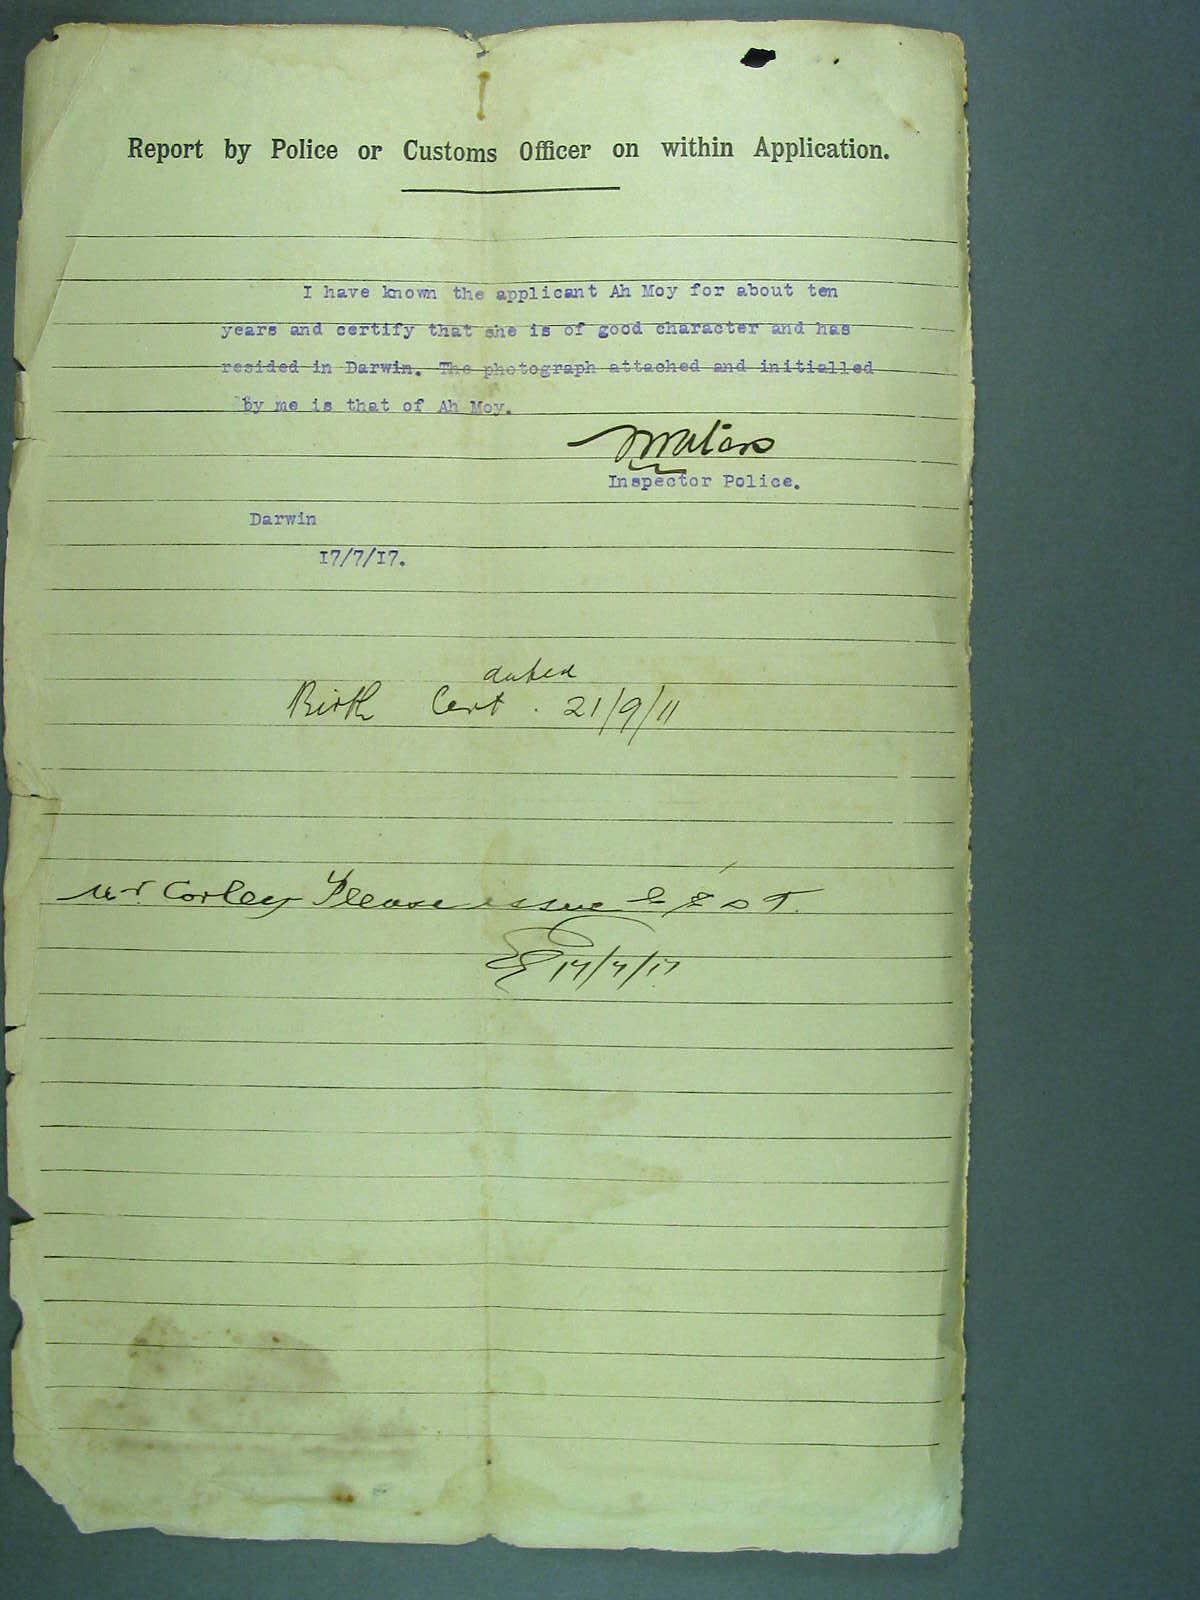 Report by Police or Customs Officer on within Application.
I have known the applicant Ah Moy for about ten
years and certify that she is of good character and has
resided in Darwin. The photograph attached and initialled
by me is that of Ah Moy.
Waters
Inspector Police.
Darwin
17/7/17.
dated
Birth Cert. 21/9/11
Mr. Corley Please issue C E D T.
17/7/17